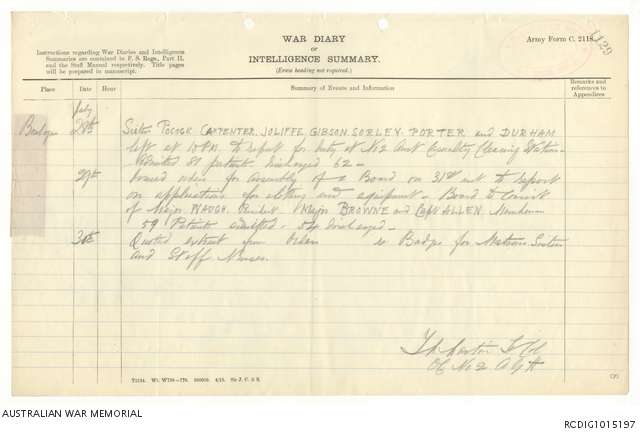 WAR DIARY
or
INTELLIGENCE SUMMARY.
(Erase heading not required.)
Army Form C. 2118.
1129
Instructions regarding War Diaries and Intelligence
Summaries are contained in F. S. Regs., Part II.
and the Staff Manual respectively. Title pages
will be prepared in manuscript.
Place Date Hour Summary of Events and Information Remarks and references to Appendices
July
28th Sisters POCOCK CARPENTER, JOLIFFE, GIBSON, SORLEY, PORTER and DURHAM
left at 10 P.M. to report for duty at No 2 Aust Casualty Clearing Station
Admitted 81 patients Discharged 62 -
29th Issued orders for assembly of a Board on 31st inst to report
on applications for clothing and equipment - Board to Consist
of Major WAUGH, President, Major BROWNE and Capt ALLEN, Members
59 Patients admitted - 54 discharged -
30th Quoted extract from Orders re Badges for Matrons, Sisters
and Staff Nurses
Lt Col
OC No 2 A G H
T2134. Wt. W708—776. 500000. 4/15. Sir J. C. & S.
AUSTRALIAN WAR MEMORIAL
RCDIG1015197